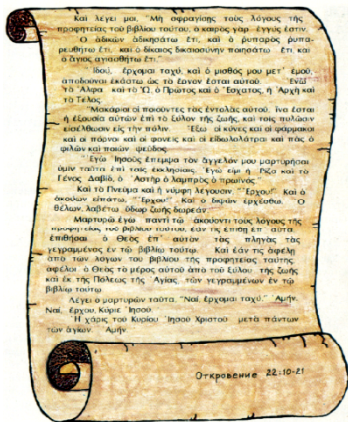 Καὶ λέγει μοι, "Μὴ σφραγίσῃς τοὺς λόγους τῆς
προφητείας τοῦ βιβλίου τούτου, ὁ καιρὸς γὰρ ἐγγύς ἐστιν.
Ὁ ἀδικῶν ἀδικησάτω ἔτι, καὶ ὁ ῥυπαρὸς ῥυπα-
ρευθήτω ἔτι, καὶ ὁ δίκαιος δικαιοσύνην ποιησάτω ἔτι καὶ
ὁ ἅγιος ἁγιασθήτω ἔτι."
"Ἰδού, ἔρχομαι ταχύ, καὶ ὁ μισθός μου μετ' ἐμοῦ,
ἀποδοῦναι ἑκάστῳ ὡς τὸ ἔργον ἔσται αὐτοῦ. "Ἐγὼ
τὸ Ἄλφα καὶ τὸ Ὦ, ὁ Πρῶτος καὶ ὁ Ἔσχατος, ἡ Ἀρχὴ καὶ
τὸ Τέλος."
"Μακάριοι οἱ ποιοῦντες τὰς ἐντολὰς αὐτοῦ, ἵνα ἔσται
ἡ ἐξουσία αὐτῶν ἐπὶ τὸ ξύλον τῆς ζωῆς, καὶ τοῖς πυλῶσιν
εἰσέλθωσιν εἰς τὴν πόλιν. "Ἔξω οἱ κύνες καὶ οἱ φάρμακοι
καὶ οἱ πόρνοι καὶ οἱ φονεῖς καὶ οἱ εἰδωλολάτραι καὶ πᾶς ὁ
φιλῶν καὶ ποιῶν ψεῦδος.
"Ἐγὼ Ἰησοῦς ἔπεμψα τὸν ἄγγελόν μου μαρτυρῆσαι
ὑμῖν ταῦτα ἐπὶ ταῖς ἐκκλησίαις. Ἐγώ εἰμι ἡ Ῥίζα καὶ τὸ
Γένος Δαβίδ, ὁ Ἀστὴρ ὁ λαμπρὸς ὁ πρωϊνός."
Καὶ τὸ Πνεῦμα καὶ ἡ νύμφη λέγουσιν, "Ἔρχου!" Καὶ ὁ
ἀκούων εἰπάτω, "Ἔρχου!" Καὶ ὁ διψῶν ἐρχέσθω. Ὁ
θέλων, λαβέτω ὕδωρ ζωῆς δωρεάν.
Μαρτυρῶ ἐγὼ παντὶ τῷ ἀκούοντι τοὺς λόγους τῆς
προφητείας τοῦ βιβλίου τούτου, ἐάν τις ἐπιθῇ ἐπ' αὐτά,
ἐπιθήσαι ὁ Θεὸς ἐπ' αὐτὸν τὰς πληγὰς τὰς
γεγραμμένας ἐν τῷ βιβλίῳ τούτῳ. Καὶ ἐάν τις ἀφέλῃ
ἀπὸ τῶν λόγων τοῦ βιβλίου τῆς προφητείας ταύτης,
ἀφέλοι ὁ Θεὸς τὸ μέρος αὐτοῦ ἀπὸ τοῦ ξύλου τῆς ζωῆς
καὶ ἐκ τῆς Πόλεως τῆς Ἁγίας, τῶν γεγραμμένων ἐν τῷ
βιβλίῳ τούτῳ.
Λέγει ὁ μαρτυρῶν ταῦτα, "Ναί, ἔρχομαι ταχύ." Ἀμήν.
Ναί, ἔρχου, Κύριε Ἰησοῦ.
Ἡ χάρις τοῦ Κυρίου Ἰησοῦ Χριστοῦ μετὰ πάντων
τῶν ἁγίων. Ἀμήν.
Откровение 22:10-21